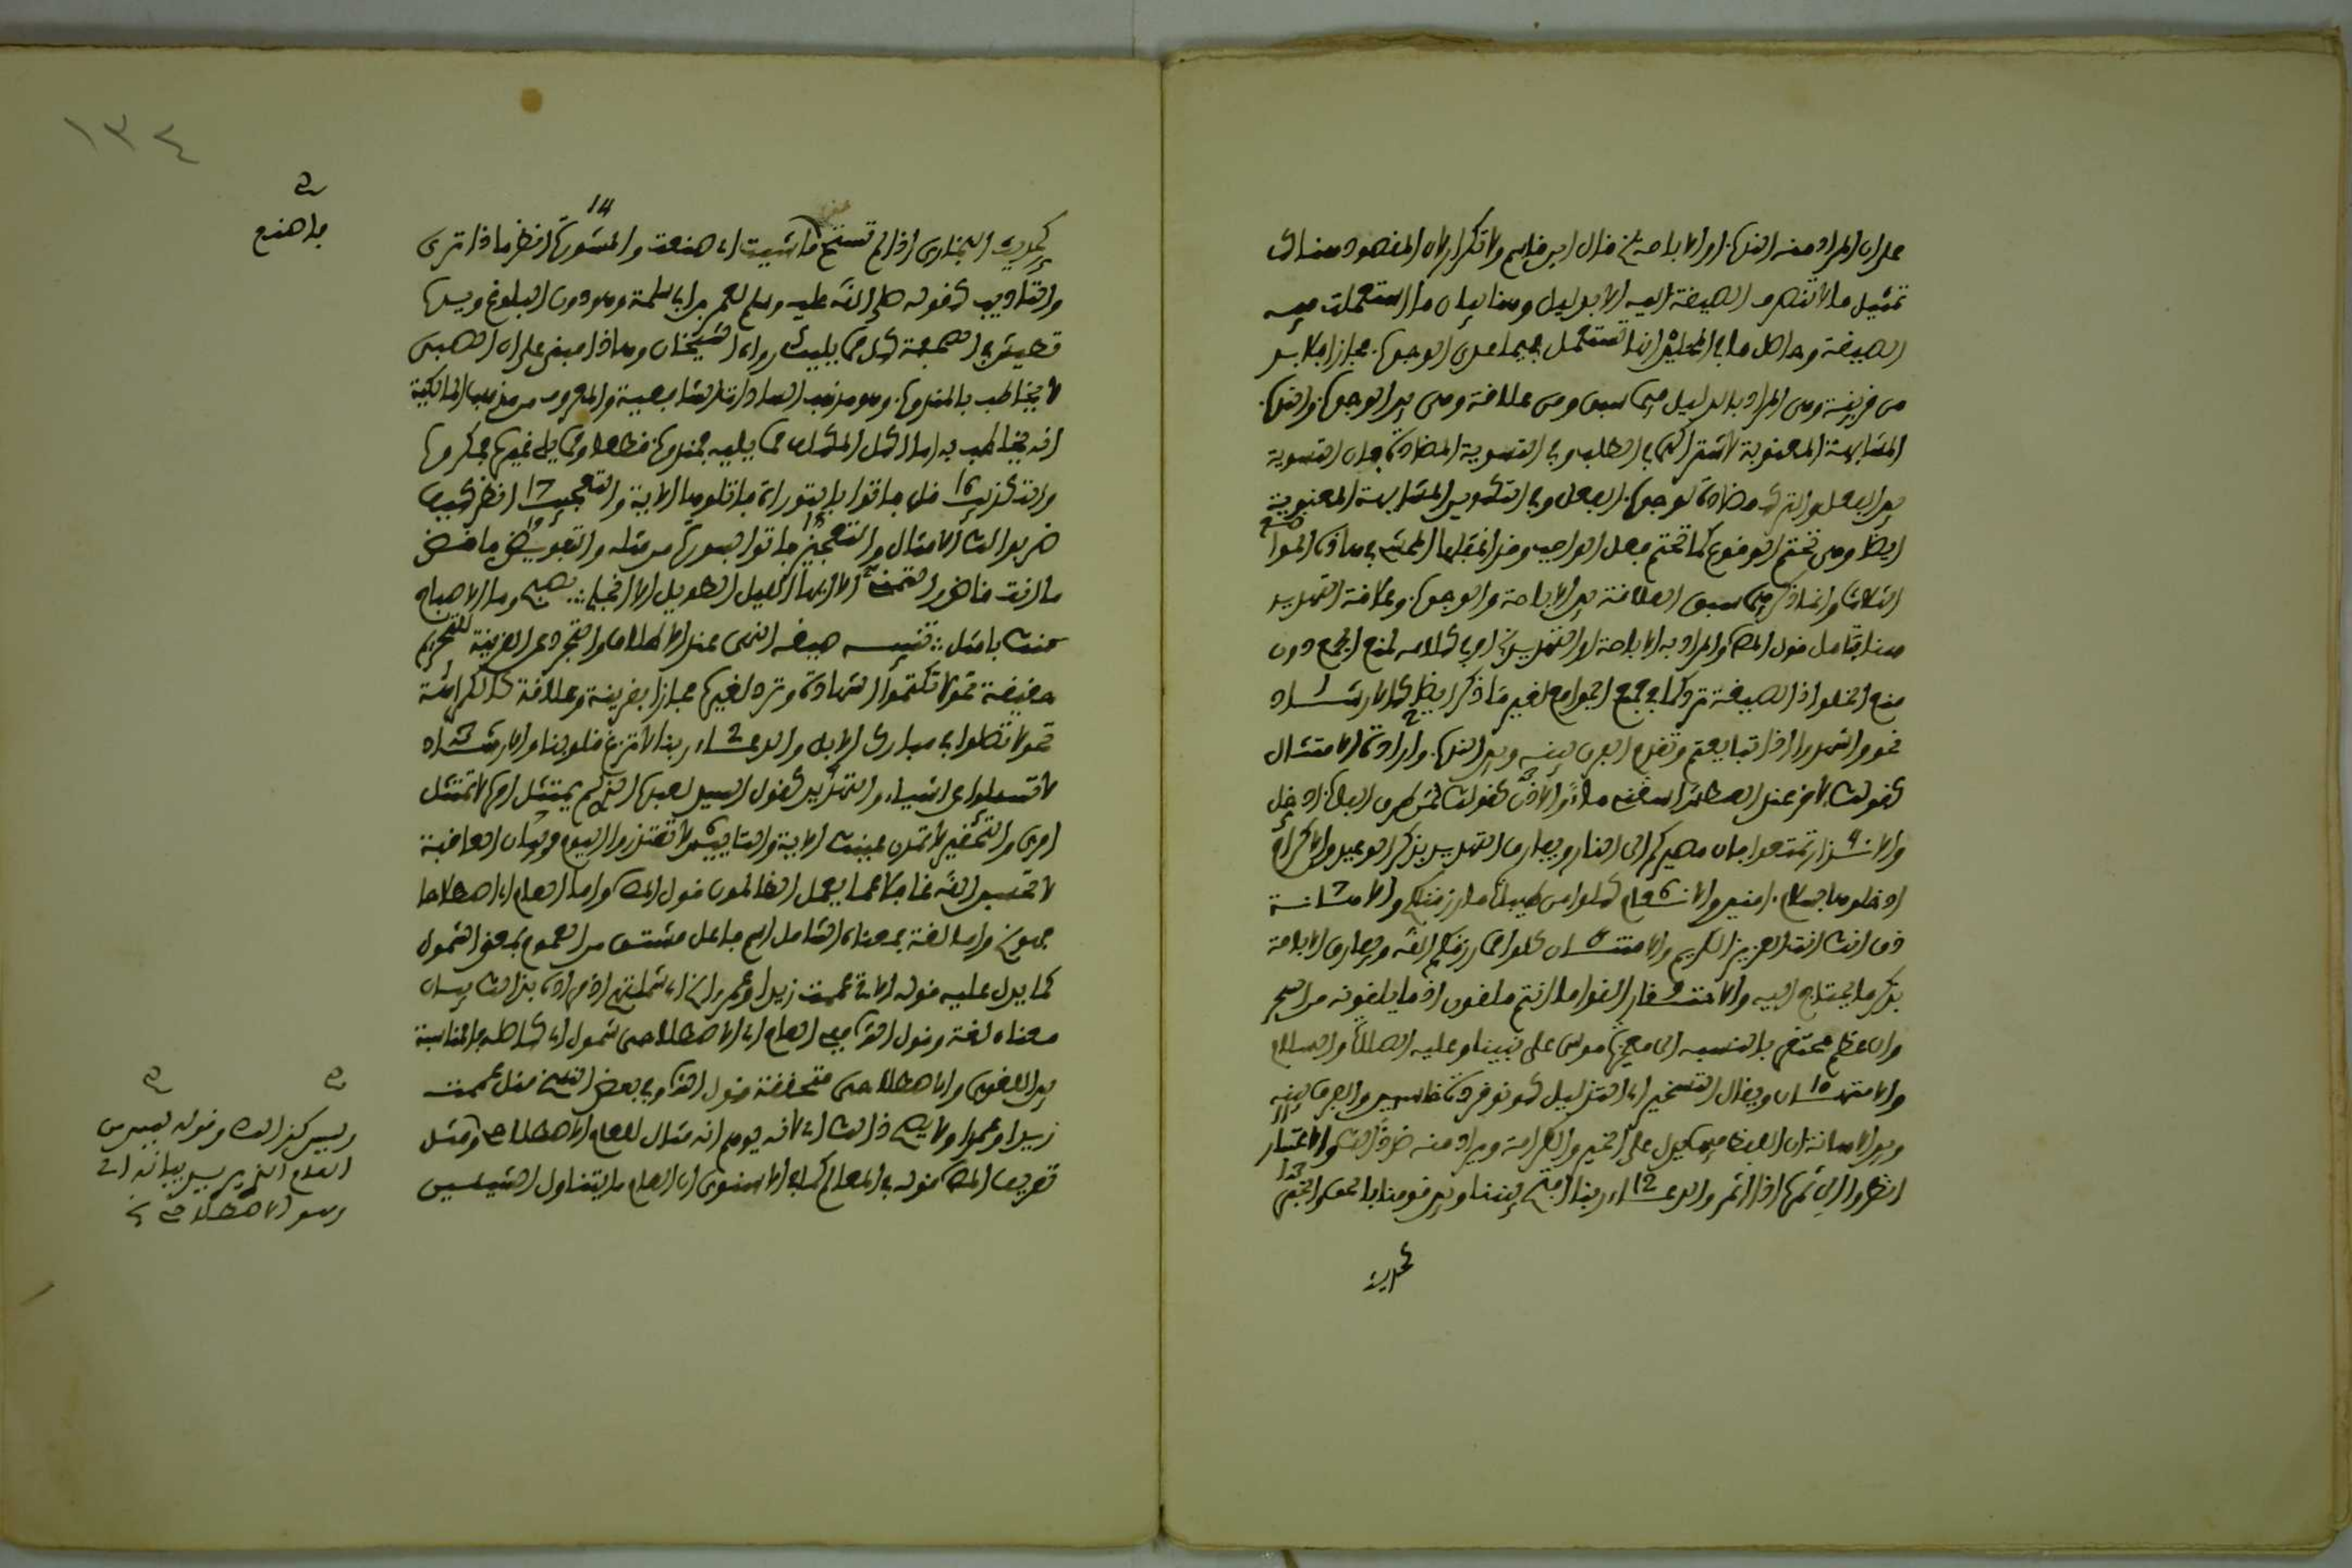 على ان المراد منه الندب او الاباحة قال ابن قاسم ولا تكرار لان المقصود هناك
تمثيل ما لا تنصرف الصيغة اليه الا بدليل وهنا بيان ما استعملت فيه
الصيغة وحاصل ما في المحلي انها تستعمل فيما عدى الوجوب مجازا فلا بد
من قرينة وهي المراد بالدليل فيما سبق ومن علاقة وهي بين الوجوب والندب
المشابهة المعنوية لاشتراكهما في الطلب وفي التسوية المضادة لان التسوية
بين الفعل والترك مضادة لوجوب الفعل وفي التكوين المشابهة المعنوية
ايضا وهي تحتم الوقوع كما تحتم فعل الواجب وقد اغفلها المحشي في هذه المواضع
الثلاث وانما ذكر فيما سبق العلاقة بين الاباحة والوجوب وعلاقة التهديد
هنا قول المص والمراد به الاباحة او التهديد او في كلامه لمنع الجمع دون
منع الخلو اذ الصيغة ترد كما في جمع الجوامع لغير ما ذكر ايضا كالارشاد 1
نحو واشهدوا اذا تبايعتم وتقدم الفرق بينه وبين الندب وارادة الامتثال 2
كقولك لاخر عند العطش اسقني ماء والاذن 3 كقولك لمن طرق الباب ادخل
والانذار 4 تمتعوا فان مصيركم الى النار ويفارق التهديد بذكر الوعيد والاكرام
ادخلوها بسلام امنين والانعام 6 كلوا من طيبات ما رزقناكم والاهانة 7
ذق انك انت العزيز الكريم والامتنان 8 كلوا مما رزقكم الله ويفارق الاباحة
بذكر ما يحتاج اليه والاحتقار 9 القوا ما انتم ملقون اذ ما يلقونه من السحر
وان عظم محتقر بالنسبة الى معجزة موسى على نبينا وعليه الصلاة والسلام
والامتهان 10 ويقال التسخير اي التذليل كونوا قردة خاسئين والفرق بينه
وبين الاهانة ان اللفظ فيها يدل على الخير والكرامة ويراد منه ضد ذلك والاعتبار 11
انظروا الى ثمره اذا اثمر والدعاء 12 ربنا افتح بيننا وبين قومنا بالحق والخبر 13
كحديث
كحديث البخاري اذا لم تستح فاصنع ما شيت اي صنعت والمشورة 14 فانظر ماذا ترى
والتاديب كقوله صلى الله عليه وسلم لعمر بن ابي سلمة وهو دون البلوغ ويده
تطيش في الصحفة كل مما يليك رواه الشيخان وهذا مبني على ان الصبي
لا يخاطب بالمندوب وهو مذهب السادات الشافعية والمعروف من مذهب المالكية
انه يخاطب به اما اكل المكلف مما يليه فمندوب قطعا ومما يلي غيره فمكروه
والتكذيب 16 قل فاتوا بالتوراة فاتلوها الاية والتعجيب 17 انظر كيف
ضربوا لك الامثال والتعجيز 18 فاتوا بسورة من مثله والتفويض 19 فاقض
ما انت قاض والتمني 20 الا ايها الليل الطويل الا انجلي :: بصبح وما الاصباح
منك بامثل :: تنبيه صيغة النهي عند الاطلاق والتجرد عن القرينة للتحريم
حقيقة نحو لا تكتموا الشهادة وترد لغيره مجازا بقرينة وعلاقة كالكراهة
نحو لا تصلوا في مبارك الابل والدعاء 2 ربنا لا تزغ قلوبنا والارشاد 3
لا تسئلوا عن اشياء والتهديد 4 كقول السيد لعبده الذي لم يمتثل امره لا تمتثل
امري والتحقير لا تمدن عينيك الاية والتاييس لا تعتذروا اليوم وبيان العاقبة
لا تحسبن الله غافلا عما يعمل الظالمون قول المص واما العام اي اصطلاحا
فهو واما لغة فمعناه الشامل اسم فاعل مشتق من العموم بمعنى الشمول
كما يدل عليه قوله الاتي عممت زيدا وعمرا اي شملتهم اذ مراده بذلك بيان
معناه لغة وقول الش في العام اي الاصطلاحي شمول اي كاصله فالمناسبة
بين اللغوي والاصطلاحي متحققة قول الش وفي بعض النسخ مثل عممت
زيدا وعمرا ولا يصح ذلك اي لانه يوهم انه مثال للعام الاصطلاحي ومثل
تعريف المص قوله في المعالم كما في الاسنوي ان العام ما يتناول الشيئين
فاصنع
وليس كذلك وقوله ليس من
العام الذي يريد بيانه اي
وهو الاصطلاحي
١٣٤